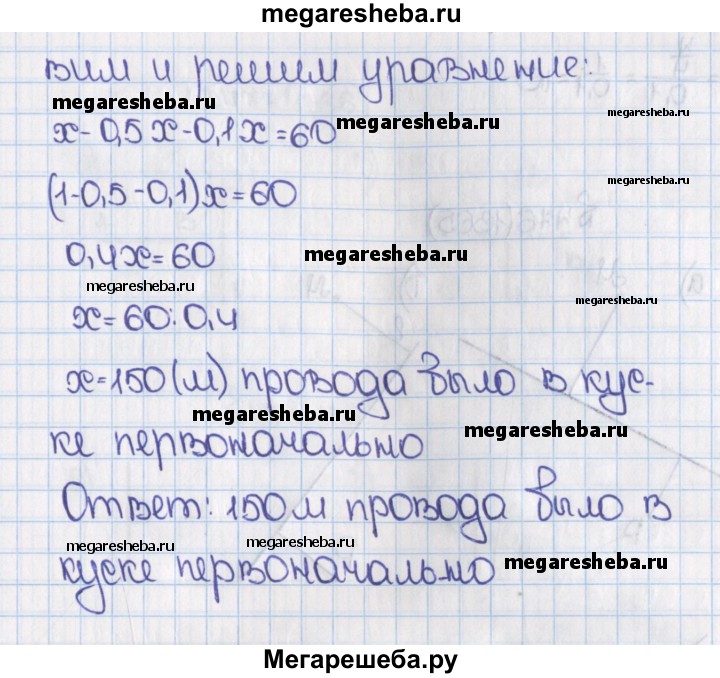 megaresheba.ru
вим и решим уравнение:
megaresheba.ru
megaresheba.ru
megaresheba.ru
х - 0,5х - 0,1х = 60
megaresheba.ru
(1-0,5-0,1)х = 60
megaresheba.ru
0,4х = 60
megaresheba.ru
megaresheba.ru
х = 60:0,4
х = 150 (м) провода было в кус-
megaresheba.ru
megaresheba.ru
ке первоначально
Ответ: 150 м провода было в
megaresheba.ru
megaresheba.ru
megaresheba.ru
куске первоначально
Мегарешеба.ру